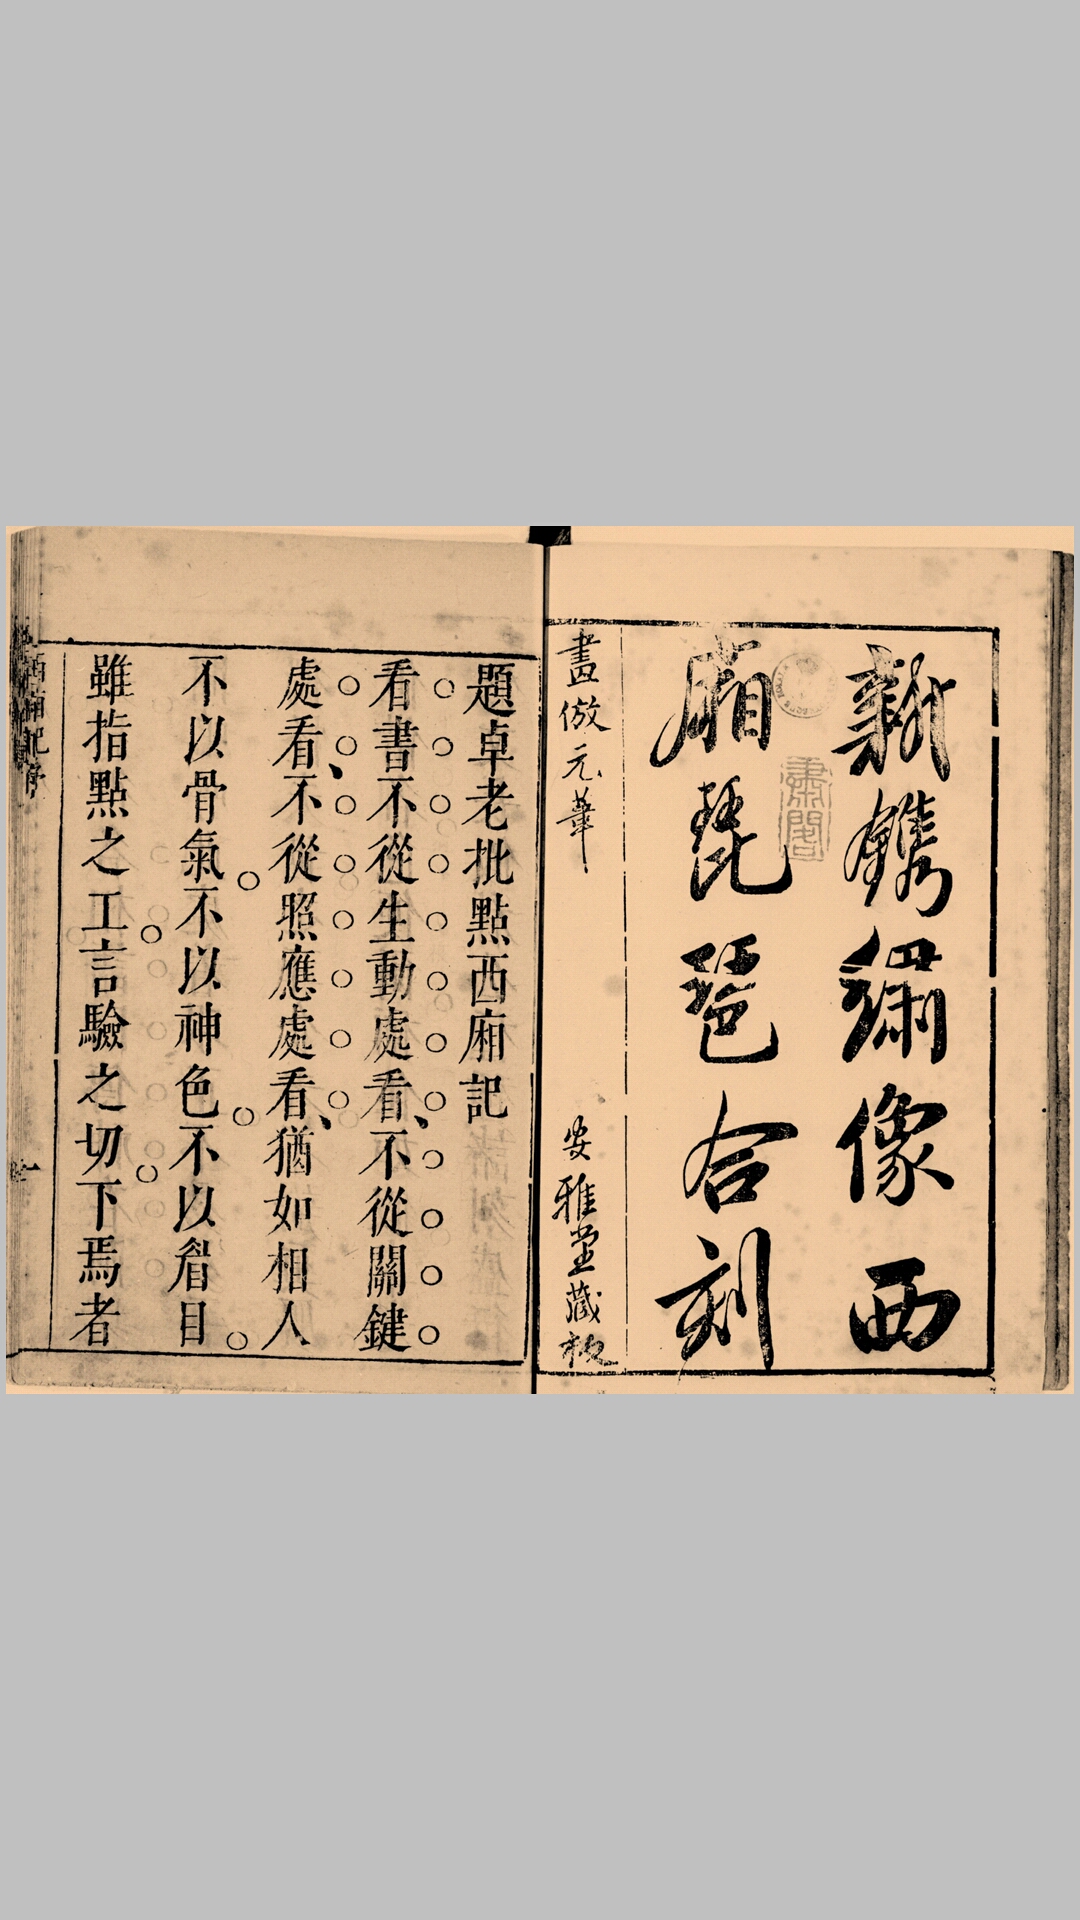 新鐫繡像西
廂琵琶合刻
畫倣元筆
安雅堂藏板
題卓老批點西廂記
看書不從生動處看、不從關鍵
處看、不從照應處看、猶如相人
不以骨氣不以神色不以眉目
雖指點之工言驗之切下焉者
西廂記序
一